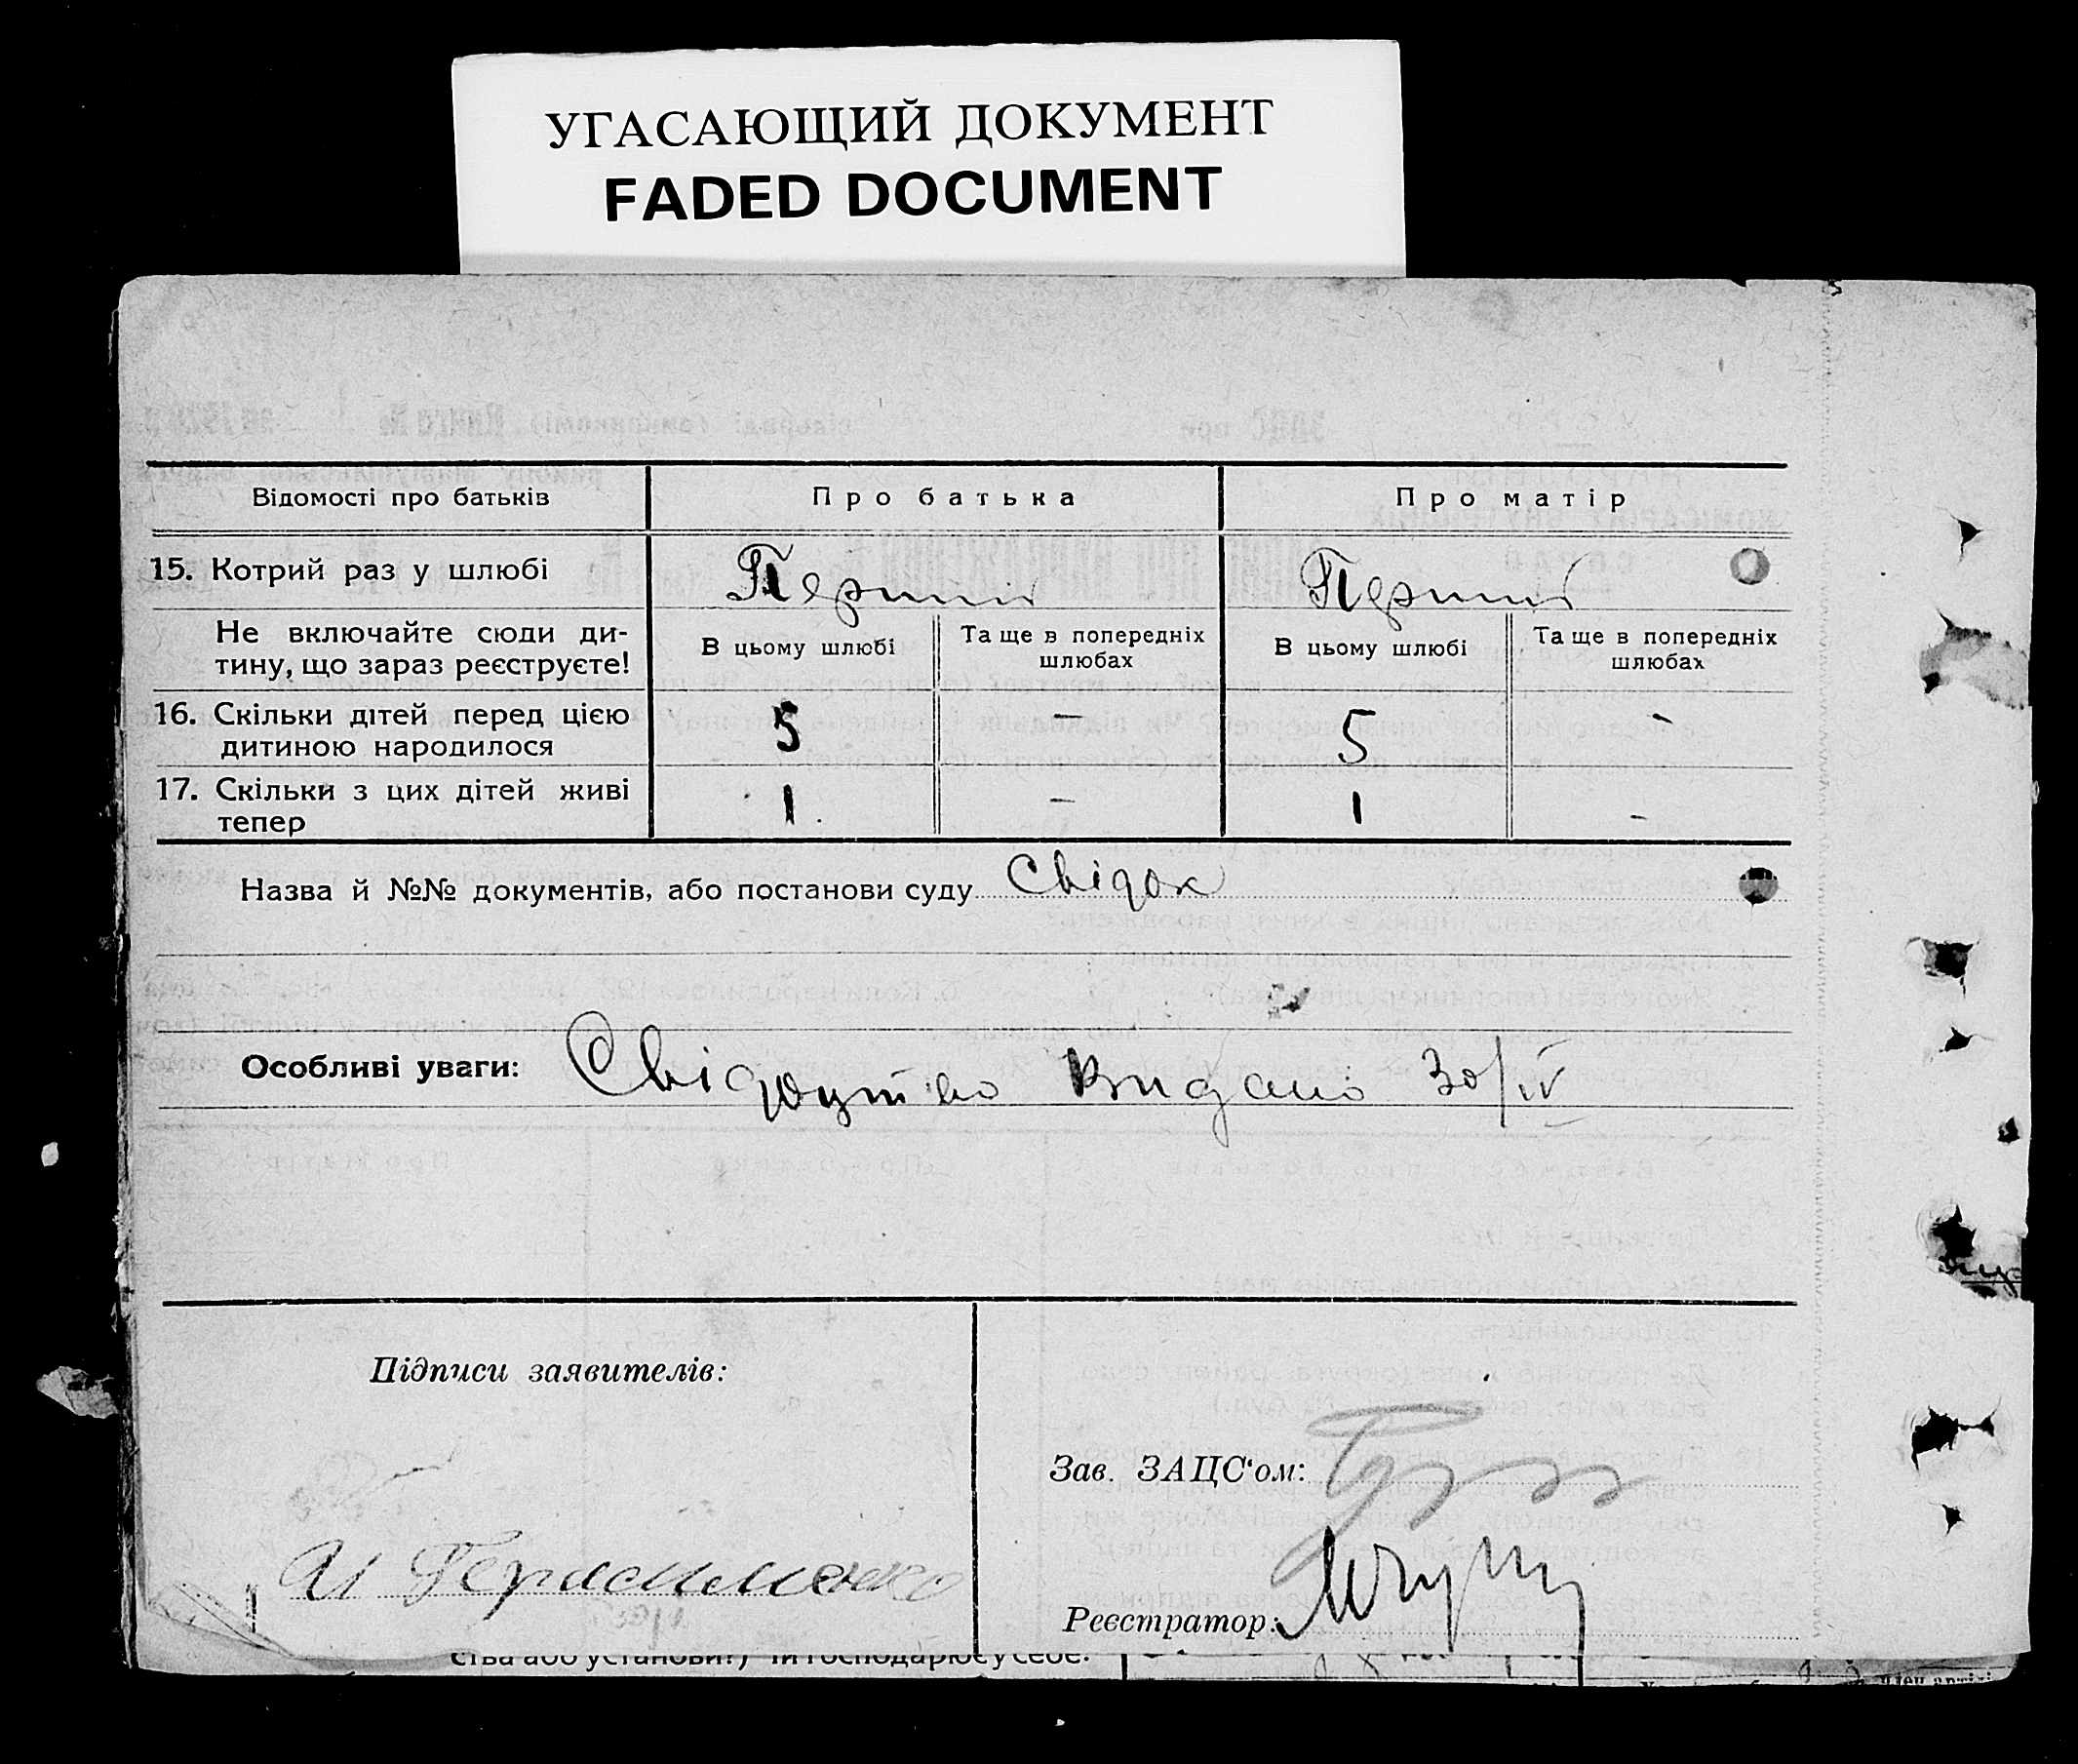 УГАСАЮЩИЙ ДОКУМЕНТ
FADED DOCUMENT
Відомості про батьків
Про батька
Про матір
15. Котрий раз у шлюбі
Перший
Перший
Не включайте сюди ди-
тину, що зараз реєструєте!
В цьому шлюбі
Та ще в попередніх
шлюбах
В цьому шлюбі
Та ще в попередніх
шлюбах
16. Скільки дітей перед цією
дитиною народилося
5
–
5
-
17. Скільки з цих дітей живі
тепер
1
–
1
-
Назва й №№ документів, або постанови суду Свідок
Особливі уваги: Свідоцтво видано 30/IV
Підписи заявителів:
Герасименко
Зав. ЗАЦС'ом:
Реєстратор:
ства або установи?) чи господарює у себе.